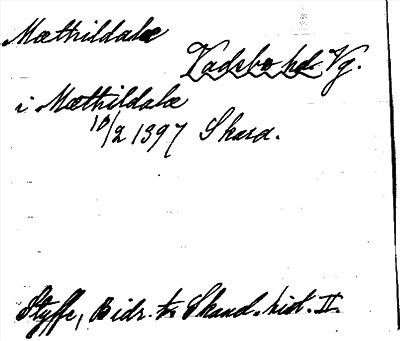 Mæthildalæ
Vadsbo hd. Vg.
i Mæthildalæ
10/2 1397 Skara.
Styffe, Bidr. t. Skand. hist. II.